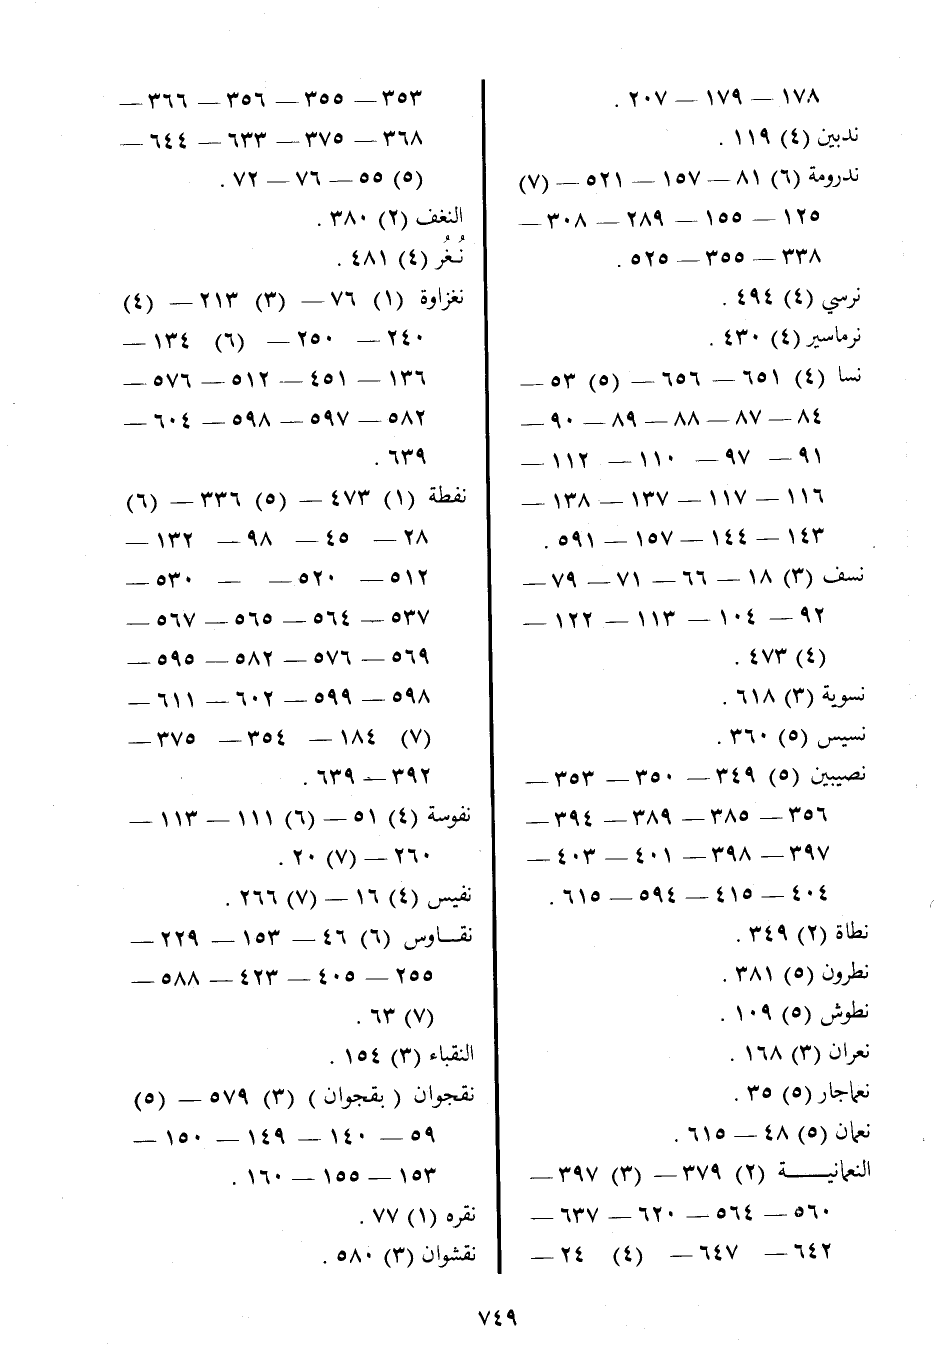 ١٧٨ — ١٧٩ — ٢٠٧ .
ندبين (٤) ١١٩ .
ندرومة (٦) ٨١ — ١٥٧ — ٥٢١ — (٧)
١٢٥ — ١٥٥ — ٢٨٩ — ٣٠٨ —
٣٣٨ — ٣٥٥ — ٥٢٥ .
نرسي (٤) ٤٩٤ .
نرماسير (٤) ٤٣٠ .
نسا (٤) ٦٥١ — ٦٥٦ — (٥) ٥٣ —
٨٤ — ٨٧ — ٨٨ — ٨٩ — ٩٠ —
٩١ — ٩٧ — ١١٠ — ١١٢ —
١١٦ — ١١٧ — ١٣٧ — ١٣٨ —
١٤٣ — ١٤٤ — ١٥٧ — ٥٩١ .
نسف (٣) ١٨ — ٦٦ — ٧١ — ٧٩ —
٩٢ — ١٠٤ — ١١٣ — ١٢٢ —
(٤) ٤٧٣ .
نسوية (٣) ٦١٨ .
نسيس (٥) ٣٦٠ .
نصيبين (٥) ٣٤٩ — ٣٥٠ — ٣٥٣ —
٣٥٦ — ٣٨٥ — ٣٨٩ — ٣٩٤ —
٣٩٧ — ٣٩٨ — ٤٠١ — ٤٠٣ —
٤٠٤ — ٤١٥ — ٥٩٤ — ٦١٥ .
نطاة (٢) ٣٤٩ .
نطرون (٥) ٣٨١ .
نطوش (٥) ١٠٩ .
نعران (٣) ١٦٨ .
نعاجار (٥) ٣٥ .
نعمان (٥) ٤٨ — ٦١٥ .
النعمانيـــة (٢) ٣٧٩ — (٣) ٣٩٧ —
٥٦٠ — ٥٦٤ — ٦٢٠ — ٦٣٧ —
٦٤٢ — ٦٤٧ — (٤) ٢٤ —
٣٥٣ — ٣٥٥ — ٣٥٦ — ٣٦٦ —
٣٦٨ — ٣٧٥ — ٦٣٣ — ٦٤٤ —
(٥) ٥٥ — ٧٦ — ٧٢ .
النغف (٢) ٣٨٠ .
نُـغُر (٤) ٤٨١ .
نغزاوة (١) ٧٦ — (٣) ٢١٣ — (٤)
٢٤٠ — ٢٥٠ — (٦) ١٣٤ —
١٣٦ — ٤٥١ — ٥١٢ — ٥٧٦ —
٥٨٢ — ٥٩٧ — ٥٩٨ — ٦٠٤ —
٦٣٩ .
نفطة (١) ٤٧٣ — (٥) ٣٣٦ — (٦)
٢٨ — ٤٥ — ٩٨ — ١٣٢ —
٥١٢ — ٥٢٠ — — ٥٣٠ —
٥٣٧ — ٥٦٤ — ٥٦٥ — ٥٦٧ —
٥٦٩ — ٥٧٦ — ٥٨٢ — ٥٩٥ —
٥٩٨ — ٥٩٩ — ٦٠٢ — ٦١١ —
(٧) ١٨٤ — ٣٥٤ — ٣٧٥ —
٣٩٢ — ٦٣٩ .
نفوسة (٤) ٥١ — (٦) ١١١ — ١١٣ —
٢٦٠ — (٧) ٢٠ .
نفيس (٤) ١٦ — (٧) ٢٦٦ .
نقـــاوس (٦) ٤٦ — ١٥٣ — ٢٢٩ —
٢٥٥ — ٤٠٥ — ٤٢٣ — ٥٨٨ —
(٧) ٦٣ .
النقباء (٣) ١٥٤ .
نقجوان ( بقجوان ) (٣) ٥٧٩ — (٥)
٥٩ — ١٤٠ — ١٤٩ — ١٥٠ —
١٥٣ — ١٥٥ — ١٦٠ .
نقره (١) ٧٧ .
نقشوان (٣) ٥٨٠ .
٧٤٩